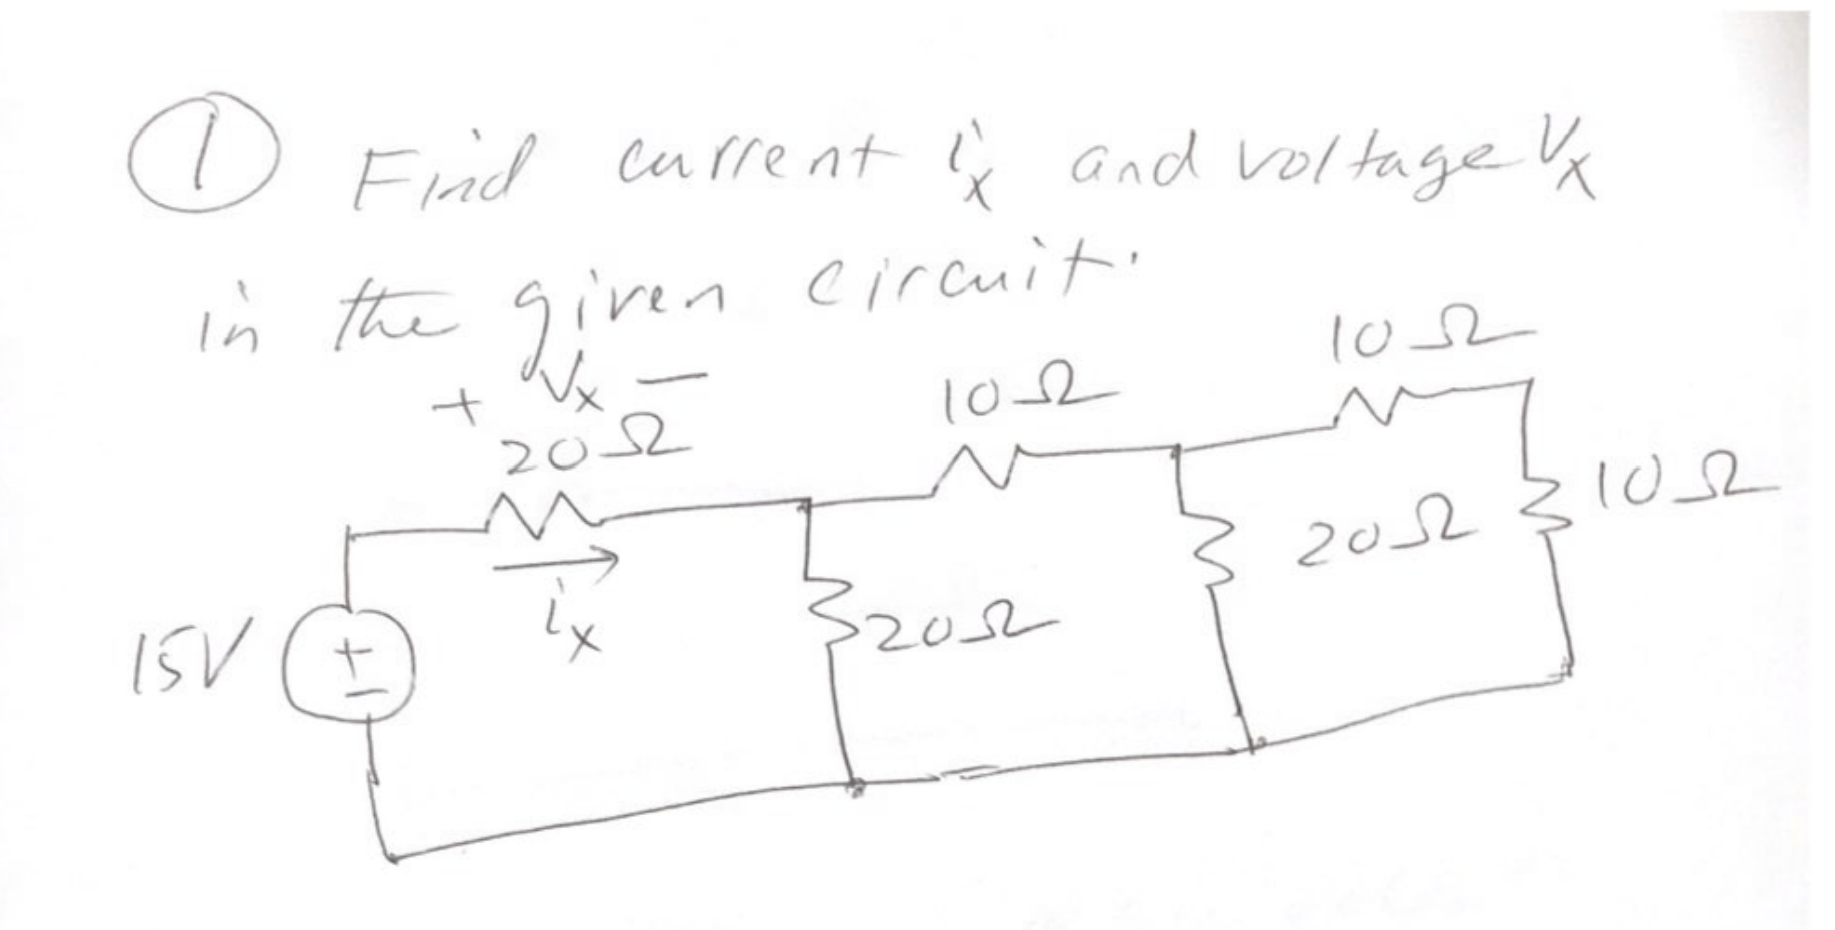 ① Find current ix and voltage Vx
in the given circuit.
+ Vx −
20Ω
10Ω
10Ω
10Ω
20Ω
20Ω
ix
15V
+
−